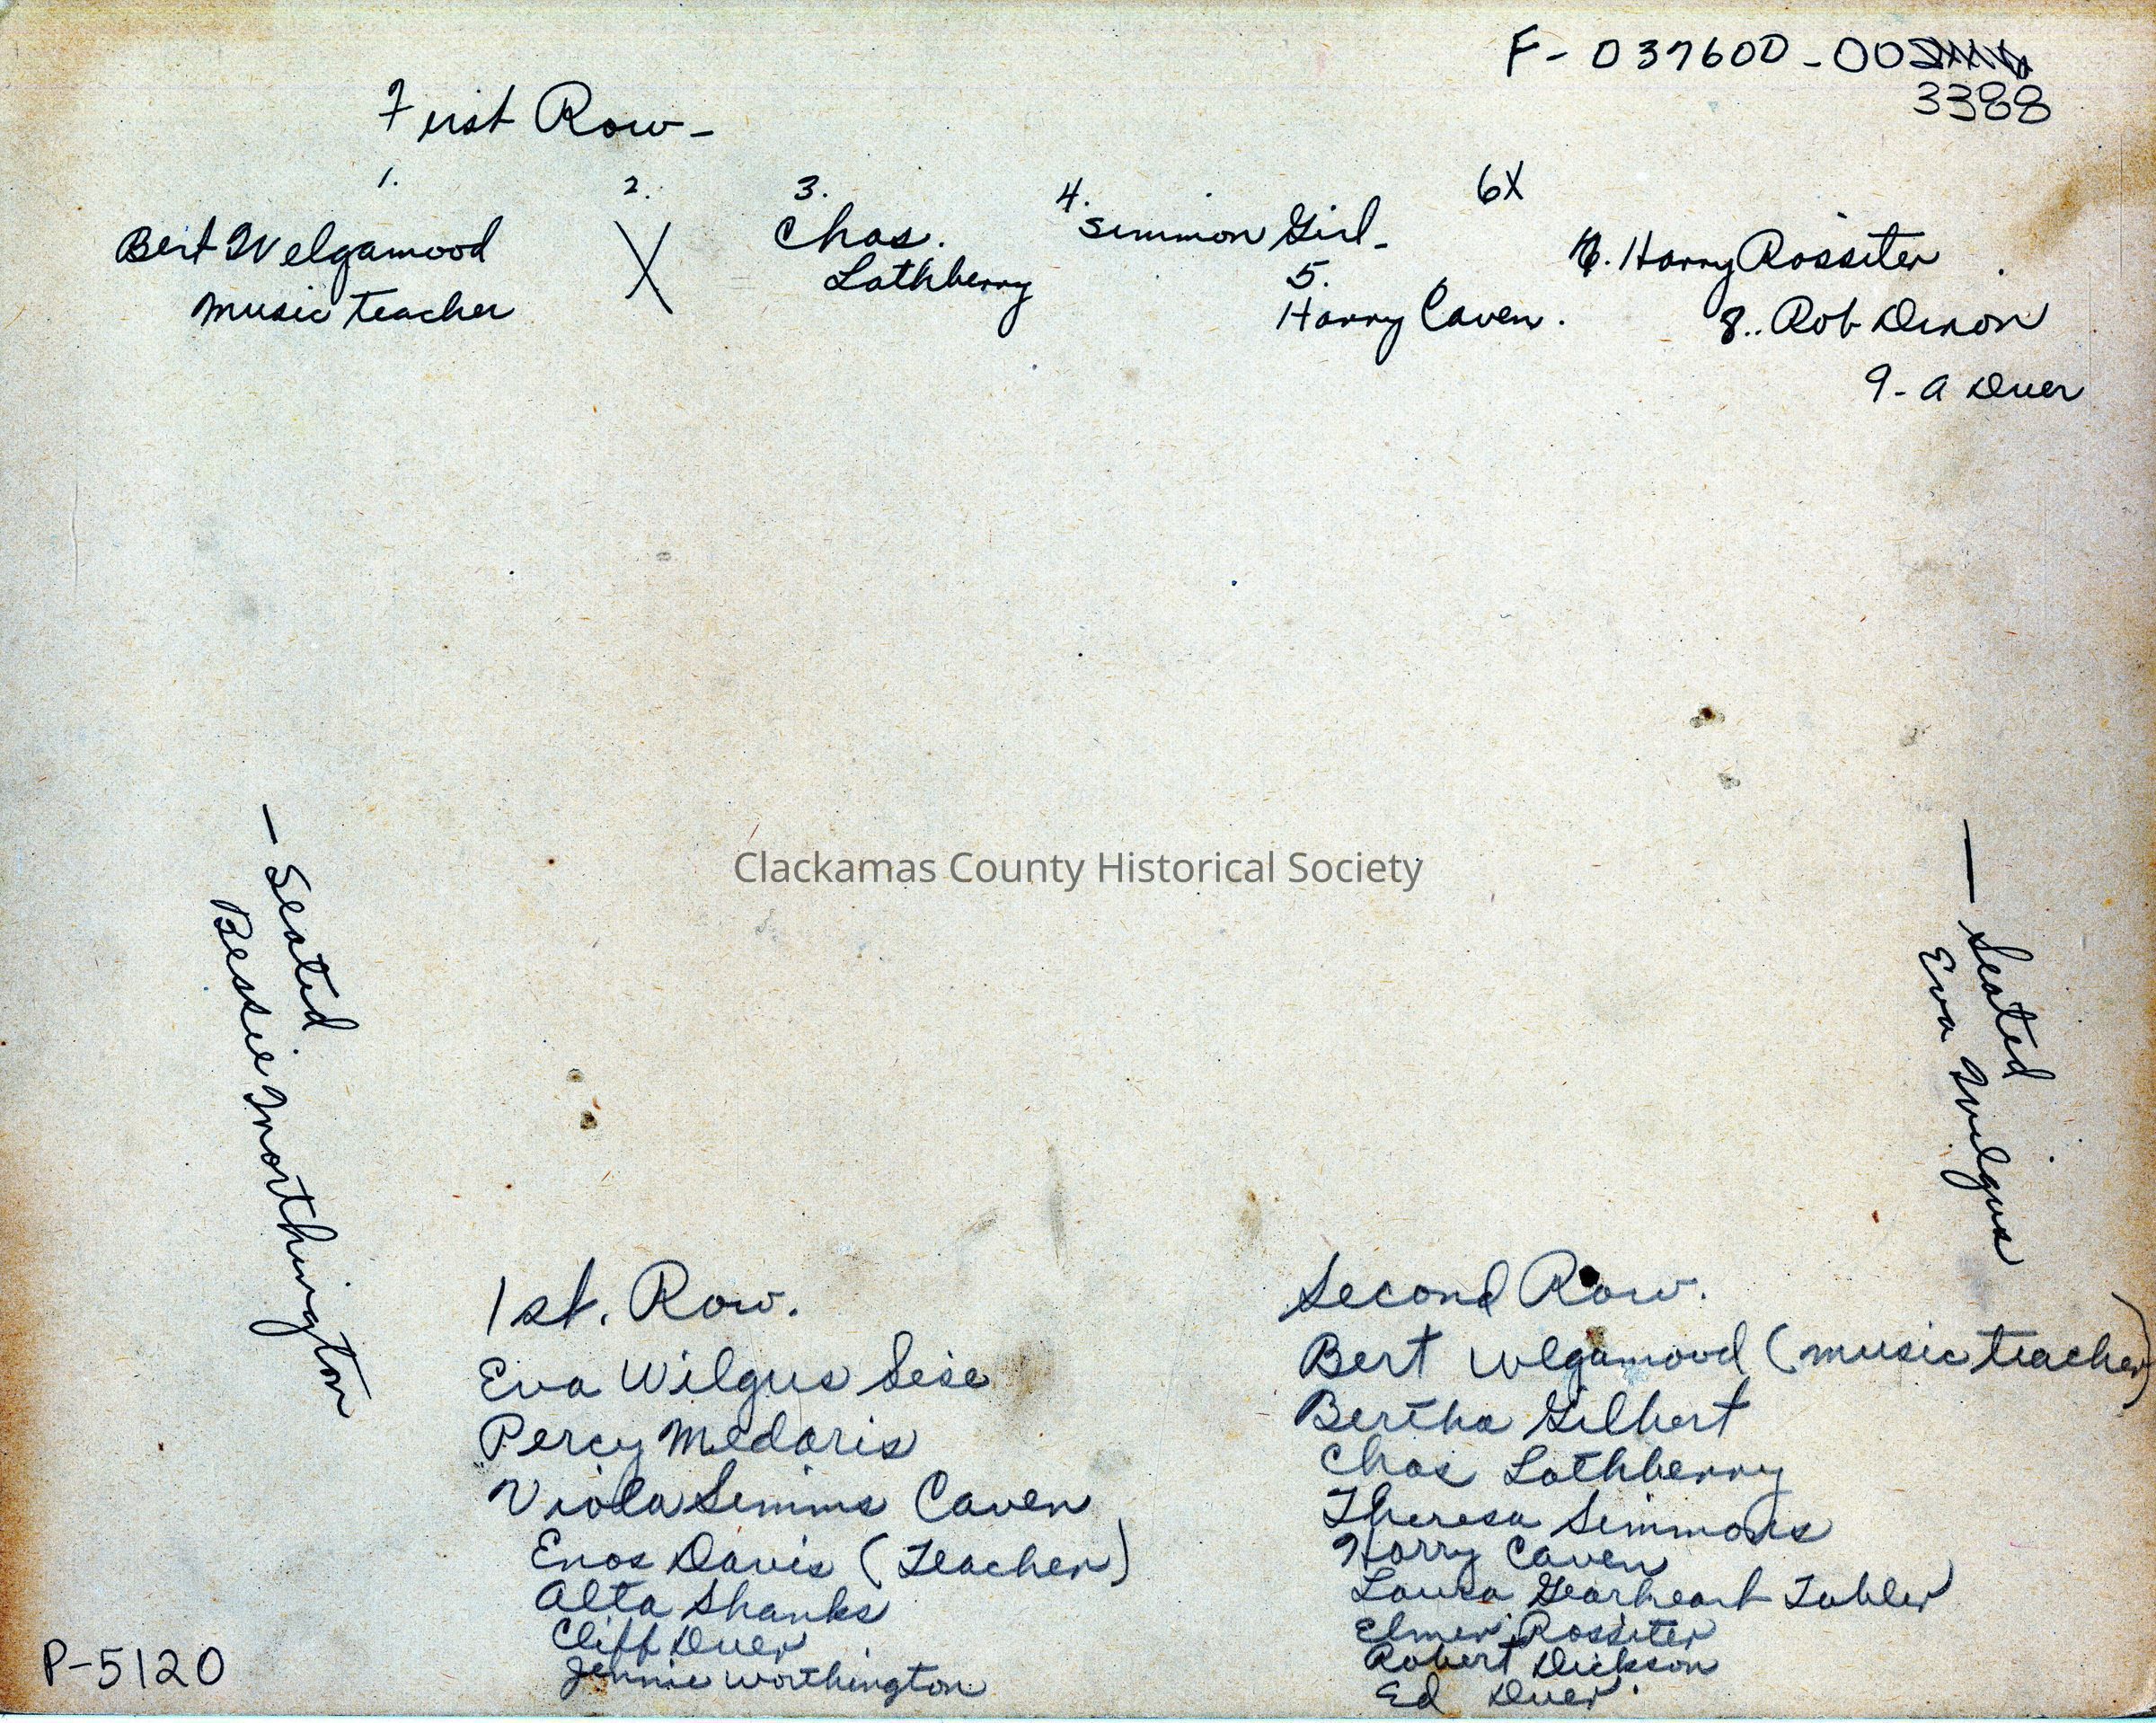 F- 037600-002
3388
First Row-
1. 2. 3. 4. 6X
Bert Welgamood X Chas. Simmon Girl-
music teacher Lathberry 5. Harry Caven.
Harry Rossiter
8.. Rob Dixon
9- A Duer
— Seated
Bessie Worthington
— Seated
Eva Wilgus
Clackamas County Historical Society
1st. Row.
Eva Wilgus Sese
Percy Medaris
Viola Simms Caven
Enos Davis (Teacher)
Alta Shanks
Cliff Duer
Jennie Worthington
Second Row.
Bert Wlgamood (music teacher)
Bertha Gilbert
Chas Lathberry
Theresa Simmons
Harry Caven
Laura Gearheart Tubler
Elmer Rossiter
Robert Dickson
Ed Duer.
P-5120